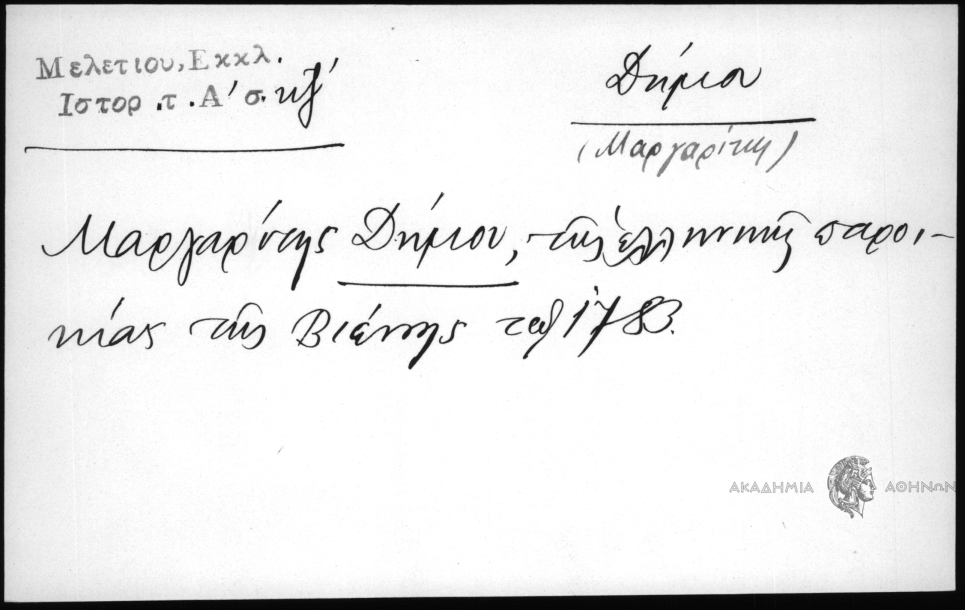 Μελετιου, Εκκλ.
Ιστορ. τ. Α΄ σ. κζ΄
Δήμου
(Μαργαρίτης)
Μαργαρίτης Δήμου, τῆς ἑλληνικῆς παροι-
κίας τῆς Βιέννης τοῦ 1783.
ΑΚΑΔΗΜΙΑ ΑΘΗΝΩΝ